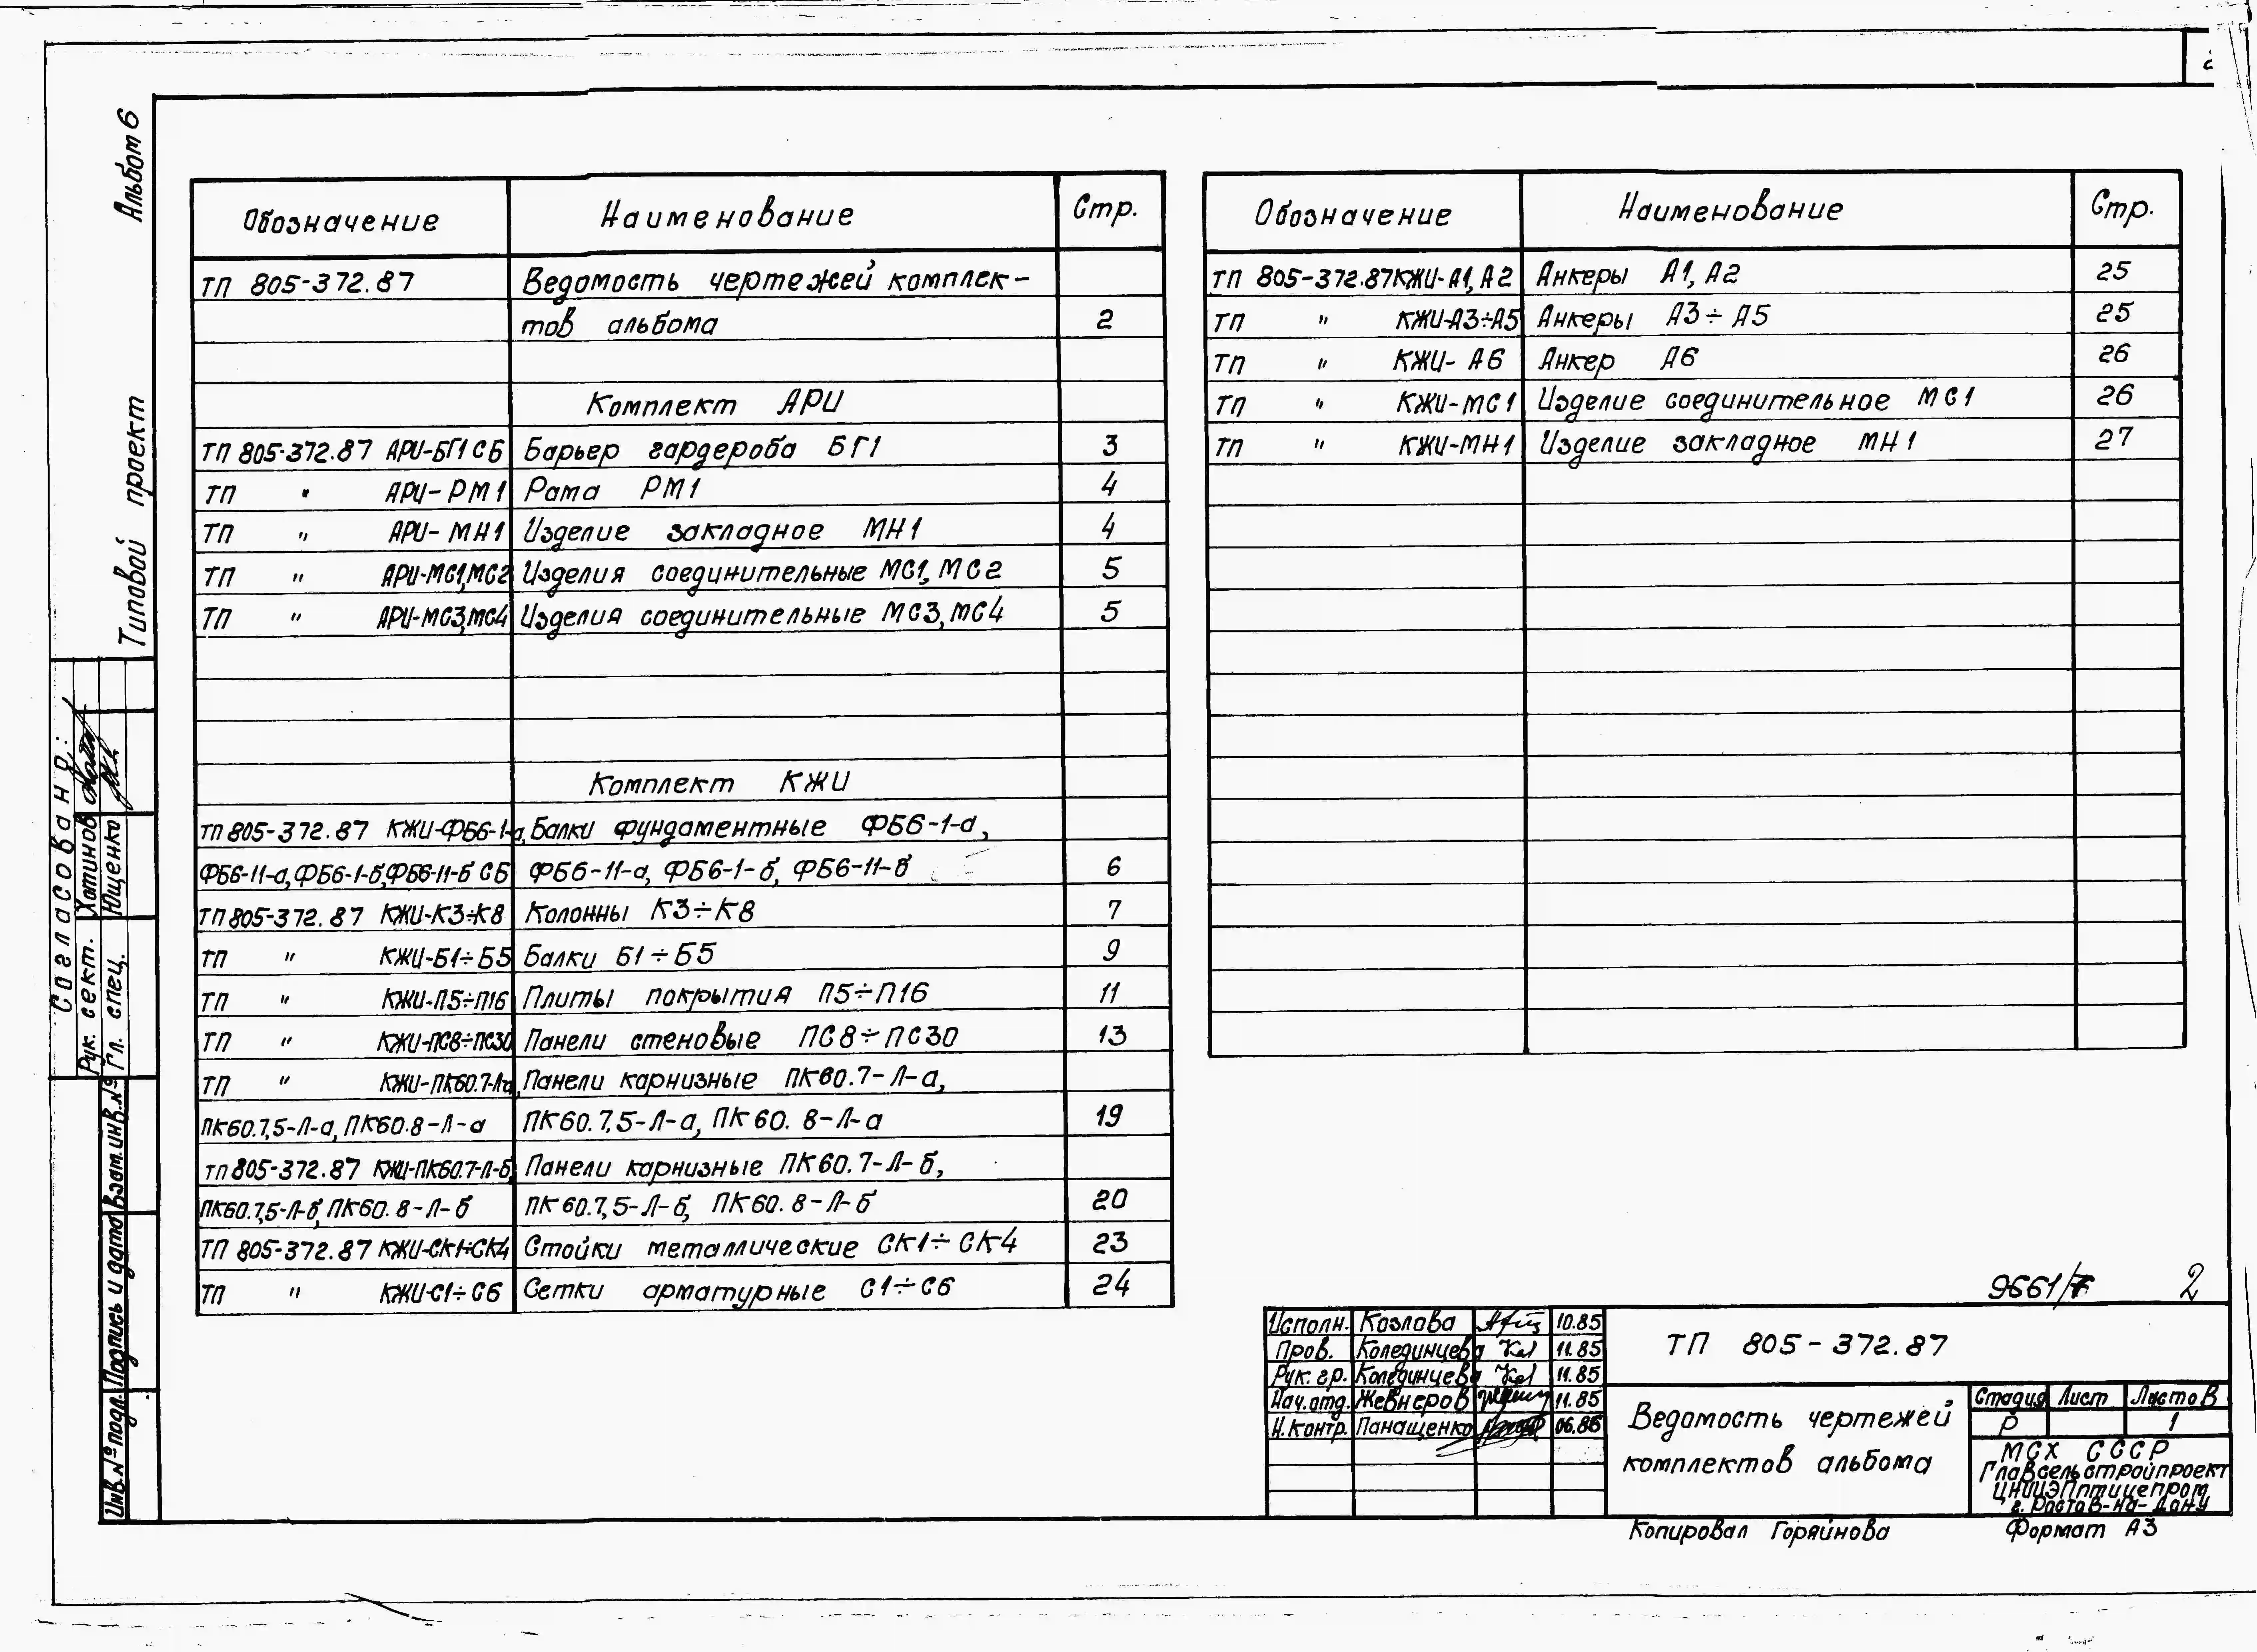 Альбом 6
Типовой проект
Обозначение Наименование Стр.
ТП 805-372.87 Ведомость чертежей комплек-
тов альбома 2
Комплект АРИ
ТП 805-372.87 АРИ-БГ1 СБ Барьер гардероба БГ1 3
ТП " АРИ-РМ1 Рама РМ1 4
ТП " АРИ-МН1 Изделие закладное МН1 4
ТП " АРИ-МС1,МС2 Изделия соединительные МС1, МС2 5
ТП " АРИ-МС3,МС4 Изделия соединительные МС3, МС4 5
Комплект КЖИ
ТП 805-372.87 КЖИ-ФБ6-1-а, Балки фундаментные ФБ6-1-а,
ФБ6-11-а, ФБ6-1-б, ФБ6-11-б СБ ФБ6-11-а, ФБ6-1-б, ФБ6-11-б 6
ТП 805-372.87 КЖИ-К3÷К8 Колонны К3÷К8 7
ТП " КЖИ-Б1÷Б5 Балки Б1÷Б5 9
ТП " КЖИ-П5÷П16 Плиты покрытия П5÷П16 11
ТП " КЖИ-ПС8÷ПС30 Панели стеновые ПС8÷ПС30 13
ТП " КЖИ-ПК60.7-Л-а, Панели карнизные ПК60.7-Л-а,
ПК60.7,5-Л-а, ПК60.8-Л-а ПК60.7,5-Л-а, ПК60.8-Л-а 19
ТП 805-372.87 КЖИ-ПК60.7-Л-б, Панели карнизные ПК60.7-Л-б,
ПК60.7,5-Л-б, ПК60.8-Л-б ПК60.7,5-Л-б, ПК60.8-Л-б 20
ТП 805-372.87 КЖИ-СК1÷СК4 Стойки металлические СК1÷СК4 23
ТП " КЖИ-С1÷С6 Сетки арматурные С1÷С6 24
Обозначение Наименование Стр.
ТП 805-372.87 КЖИ-А1, А2 Анкеры А1, А2 25
ТП " КЖИ-А3÷А5 Анкеры А3÷А5 25
ТП " КЖИ-А6 Анкер А6 26
ТП " КЖИ-МС1 Изделие соединительное МС1 26
ТП " КЖИ-МН1 Изделие закладное МН1 27
Согласовано:
Рук. сект. Хатинов
Гл. спец. Ющенко
Взам.инв.№
Подпись и дата
Инв.№ подл.
2
Исполн. Козлова 10.85
Пров. Колединцева 11.85
Рук. гр. Колединцева 11.85
Нач.отд. Жевнеров 11.85
Н.контр. Панащенко 06.86
ТП 805-372.87
Ведомость чертежей
комплектов альбома
Стадия Лист Листов
Р 1
МСХ СССР
Главсельстройпроект
ЦНИИЭПптицепром
г. Ростов-на-Дону
Копировал Горяйнова Формат А3